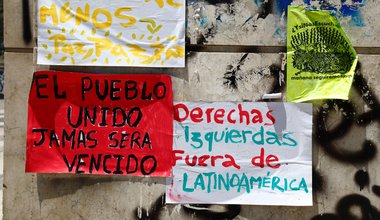 MENOS
EL PUEBLO
UNIDO
JAMAS SERA
VENCIDO
Derechas
Izquierdas
Fuera de
LATINOAMÉRICA
mañana seguiremos